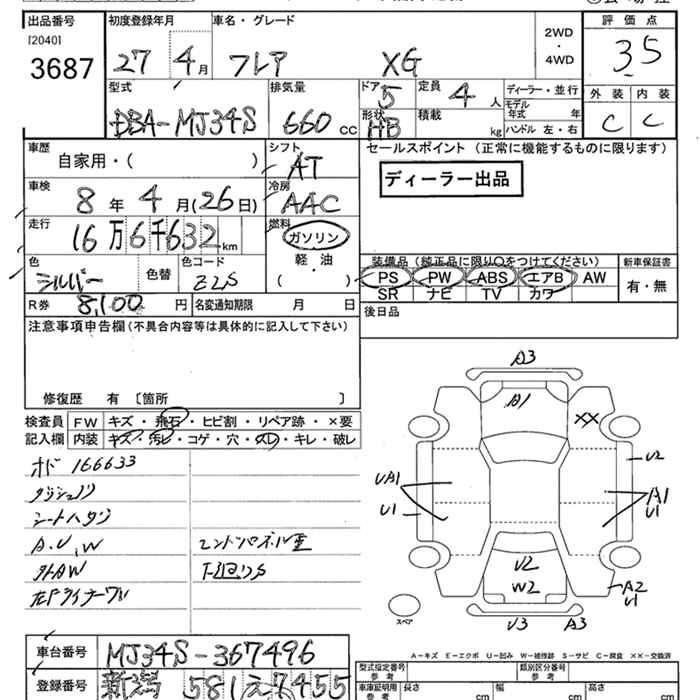 出品番号 初度登録年月 車名・グレード 評価点
[2040] 3687
27 4月 フレア XG
2WD・4WD
3.5
型式 DBA-MJ34S
排気量 660 cc
ドア 5 形状 HB
定員 4 人 積載 kg
ディーラー・並行
モデル年式 年
ハンドル 左・右
外装 内装
C C
車歴 自家用・( )
シフト AT
セールスポイント(正常に機能するものに限ります)
ディーラー出品
車検 8年 4月(26日)
冷房 AAC
走行 16万6千632km
燃料 ガソリン
軽・油
( )
色 シルバー 色替 色コード Z2S
装備品(純正品に限り○をつけてください) 新車保証書
PS PW ABS エアB AW 有・無
SR ナビ TV カワ
R券 8,100 円 名変通知期限 月 日
後日品
注意事項申告欄(不具合内容等は具体的に記入して下さい)
修復歴 有〔箇所 〕
検査員記入欄
FW キズ・飛石・ヒビ割・リペア跡・×要
内装 キズ・汚レ・コゲ・穴・スレ・キレ・破レ
オド 166633
ダッシュノリ
シートハゲ
A.U.W
エンドパネル歪
外AW
下廻りS
A3
A1
XX
U2
UA1
U1
A1
U1
U2
W2
A2
U1
U3 A3
スペア
A-キズ E-エクボ U-凹み W-補修跡 S-サビ C-腐食 XX-交換済
車台番号 MJ34S-367496
登録番号 新潟 581え7455
型式指定番号 参考
類別区分番号 参考
車庫証明用 参考 長さ cm 幅 cm 高さ cm